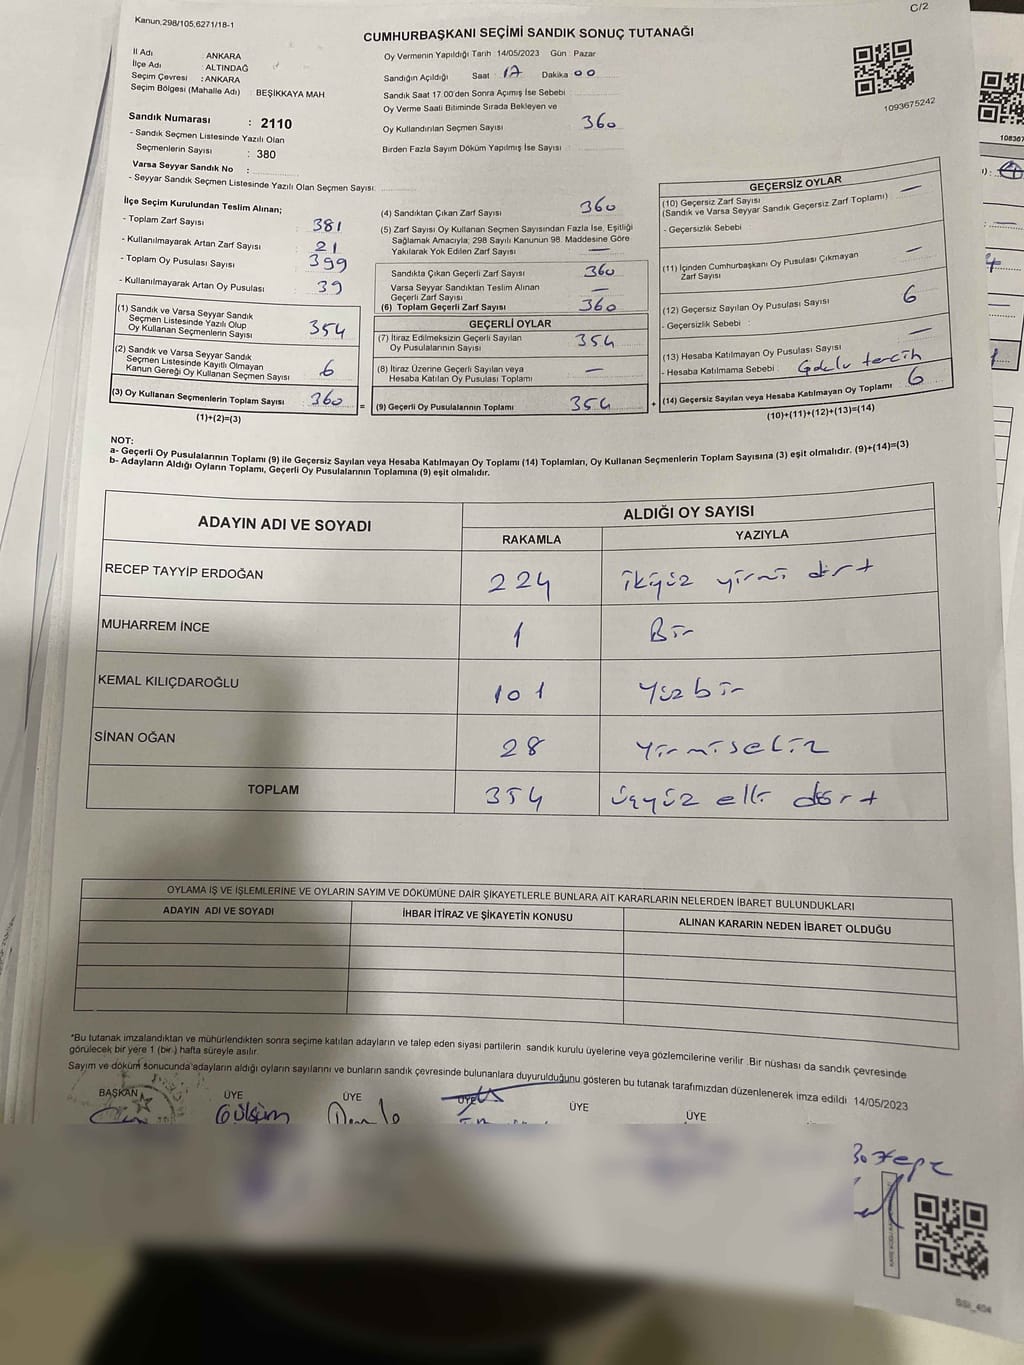 C/2
Kanun,298/105,6271/18-1
CUMHURBAŞKANI SEÇİMİ SANDIK SONUÇ TUTANAĞI
İl Adı : ANKARA
İlçe Adı : ALTINDAĞ
Seçim Çevresi : ANKARA
Seçim Bölgesi (Mahalle Adı) : BEŞİKKAYA MAH
Sandık Numarası : 2110
- Sandık Seçmen Listesinde Yazılı Olan
Seçmenlerin Sayısı : 380
Varsa Seyyar Sandık No :
- Seyyar Sandık Seçmen Listesinde Yazılı Olan Seçmen Sayısı:
Oy Vermenin Yapıldığı Tarih : 14/05/2023 Gün : Pazar
Sandığın Açıldığı Saat : 17 Dakika 00
Sandık Saat 17.00'den Sonra Açımış İse Sebebi :
Oy Verme Saati Bitiminde Sırada Bekleyen ve
Oy Kullandırılan Seçmen Sayısı : 360
Birden Fazla Sayım Döküm Yapılmış İse Sayısı :
1093675242
İlçe Seçim Kurulundan Teslim Alınan;
- Toplam Zarf Sayısı 381
- Kullanılmayarak Artan Zarf Sayısı 21
- Toplam Oy Pusulası Sayısı 399
- Kullanılmayarak Artan Oy Pusulası 39
(1) Sandık ve Varsa Seyyar Sandık
Seçmen Listesinde Yazılı Olup
Oy Kullanan Seçmenlerin Sayısı 354
(2) Sandık ve Varsa Seyyar Sandık
Seçmen Listesinde Kayıtlı Olmayan
Kanun Gereği Oy Kullanan Seçmen Sayısı 6
(3) Oy Kullanan Seçmenlerin Toplam Sayısı 360 =
(1)+(2)=(3)
(4) Sandıktan Çıkan Zarf Sayısı 360
(5) Zarf Sayısı Oy Kullanan Seçmen Sayısından Fazla İse, Eşitliği
Sağlamak Amacıyla; 298 Sayılı Kanunun 98. Maddesine Göre
Yakılarak Yok Edilen Zarf Sayısı —
Sandıkta Çıkan Geçerli Zarf Sayısı 360
Varsa Seyyar Sandıktan Teslim Alınan
Geçerli Zarf Sayısı —
(6) Toplam Geçerli Zarf Sayısı 360
GEÇERLİ OYLAR
(7) İtiraz Edilmeksizin Geçerli Sayılan
Oy Pusulalarının Sayısı 354
(8) İtiraz Üzerine Geçerli Sayılan veya
Hesaba Katılan Oy Pusulası Toplamı —
(9) Geçerli Oy Pusulalarının Toplamı 354 +
GEÇERSİZ OYLAR
(10) Geçersiz Zarf Sayısı —
(Sandık ve Varsa Seyyar Sandık Geçersiz Zarf Toplamı)
- Geçersizlik Sebebi :
(11) İçinden Cumhurbaşkanı Oy Pusulası Çıkmayan —
Zarf Sayısı
(12) Geçersiz Sayılan Oy Pusulası Sayısı 6
- Geçersizlik Sebebi :
(13) Hesaba Katılmayan Oy Pusulası Sayısı —
- Hesaba Katılmama Sebebi : Çoklu tercih
(14) Geçersiz Sayılan veya Hesaba Katılmayan Oy Toplamı 6
(10)+(11)+(12)+(13)=(14)
NOT:
a- Geçerli Oy Pusulalarının Toplamı (9) ile Geçersiz Sayılan veya Hesaba Katılmayan Oy Toplamı (14) Toplamları, Oy Kullanan Seçmenlerin Toplam Sayısına (3) eşit olmalıdır. (9)+(14)=(3)
b- Adayların Aldığı Oyların Toplamı, Geçerli Oy Pusulalarının Toplamına (9) eşit olmalıdır.
ADAYIN ADI VE SOYADI ALDIĞI OY SAYISI
RAKAMLA YAZIYLA
RECEP TAYYİP ERDOĞAN 224 ikiyüz yirmi dört
MUHARREM İNCE 1 Bir
KEMAL KILIÇDAROĞLU 101 Yüzbir
SİNAN OĞAN 28 Yirmisekiz
TOPLAM 354 üçyüz elli dört
OYLAMA İŞ VE İŞLEMLERİNE VE OYLARIN SAYIM VE DÖKÜMÜNE DAİR ŞİKAYETLERLE BUNLARA AİT KARARLARIN NELERDEN İBARET BULUNDUKLARI
ADAYIN ADI VE SOYADI İHBAR İTİRAZ VE ŞİKAYETİN KONUSU ALINAN KARARIN NEDEN İBARET OLDUĞU
*Bu tutanak imzalandıktan ve mühürlendikten sonra seçime katılan adayların ve talep eden siyasi partilerin sandık kurulu üyelerine veya gözlemcilerine verilir. Bir nüshası da sandık çevresinde
görülecek bir yere 1 (bir) hafta süreyle asılır.
Sayım ve döküm sonucunda adayların aldığı oyların sayılarını ve bunların sandık çevresinde bulunanlara duyurulduğunu gösteren bu tutanak tarafımızdan düzenlenerek imza edildi 14/05/2023
BAŞKAN ÜYE ÜYE ÜYE ÜYE ÜYE
Gülşüm
Boztepe